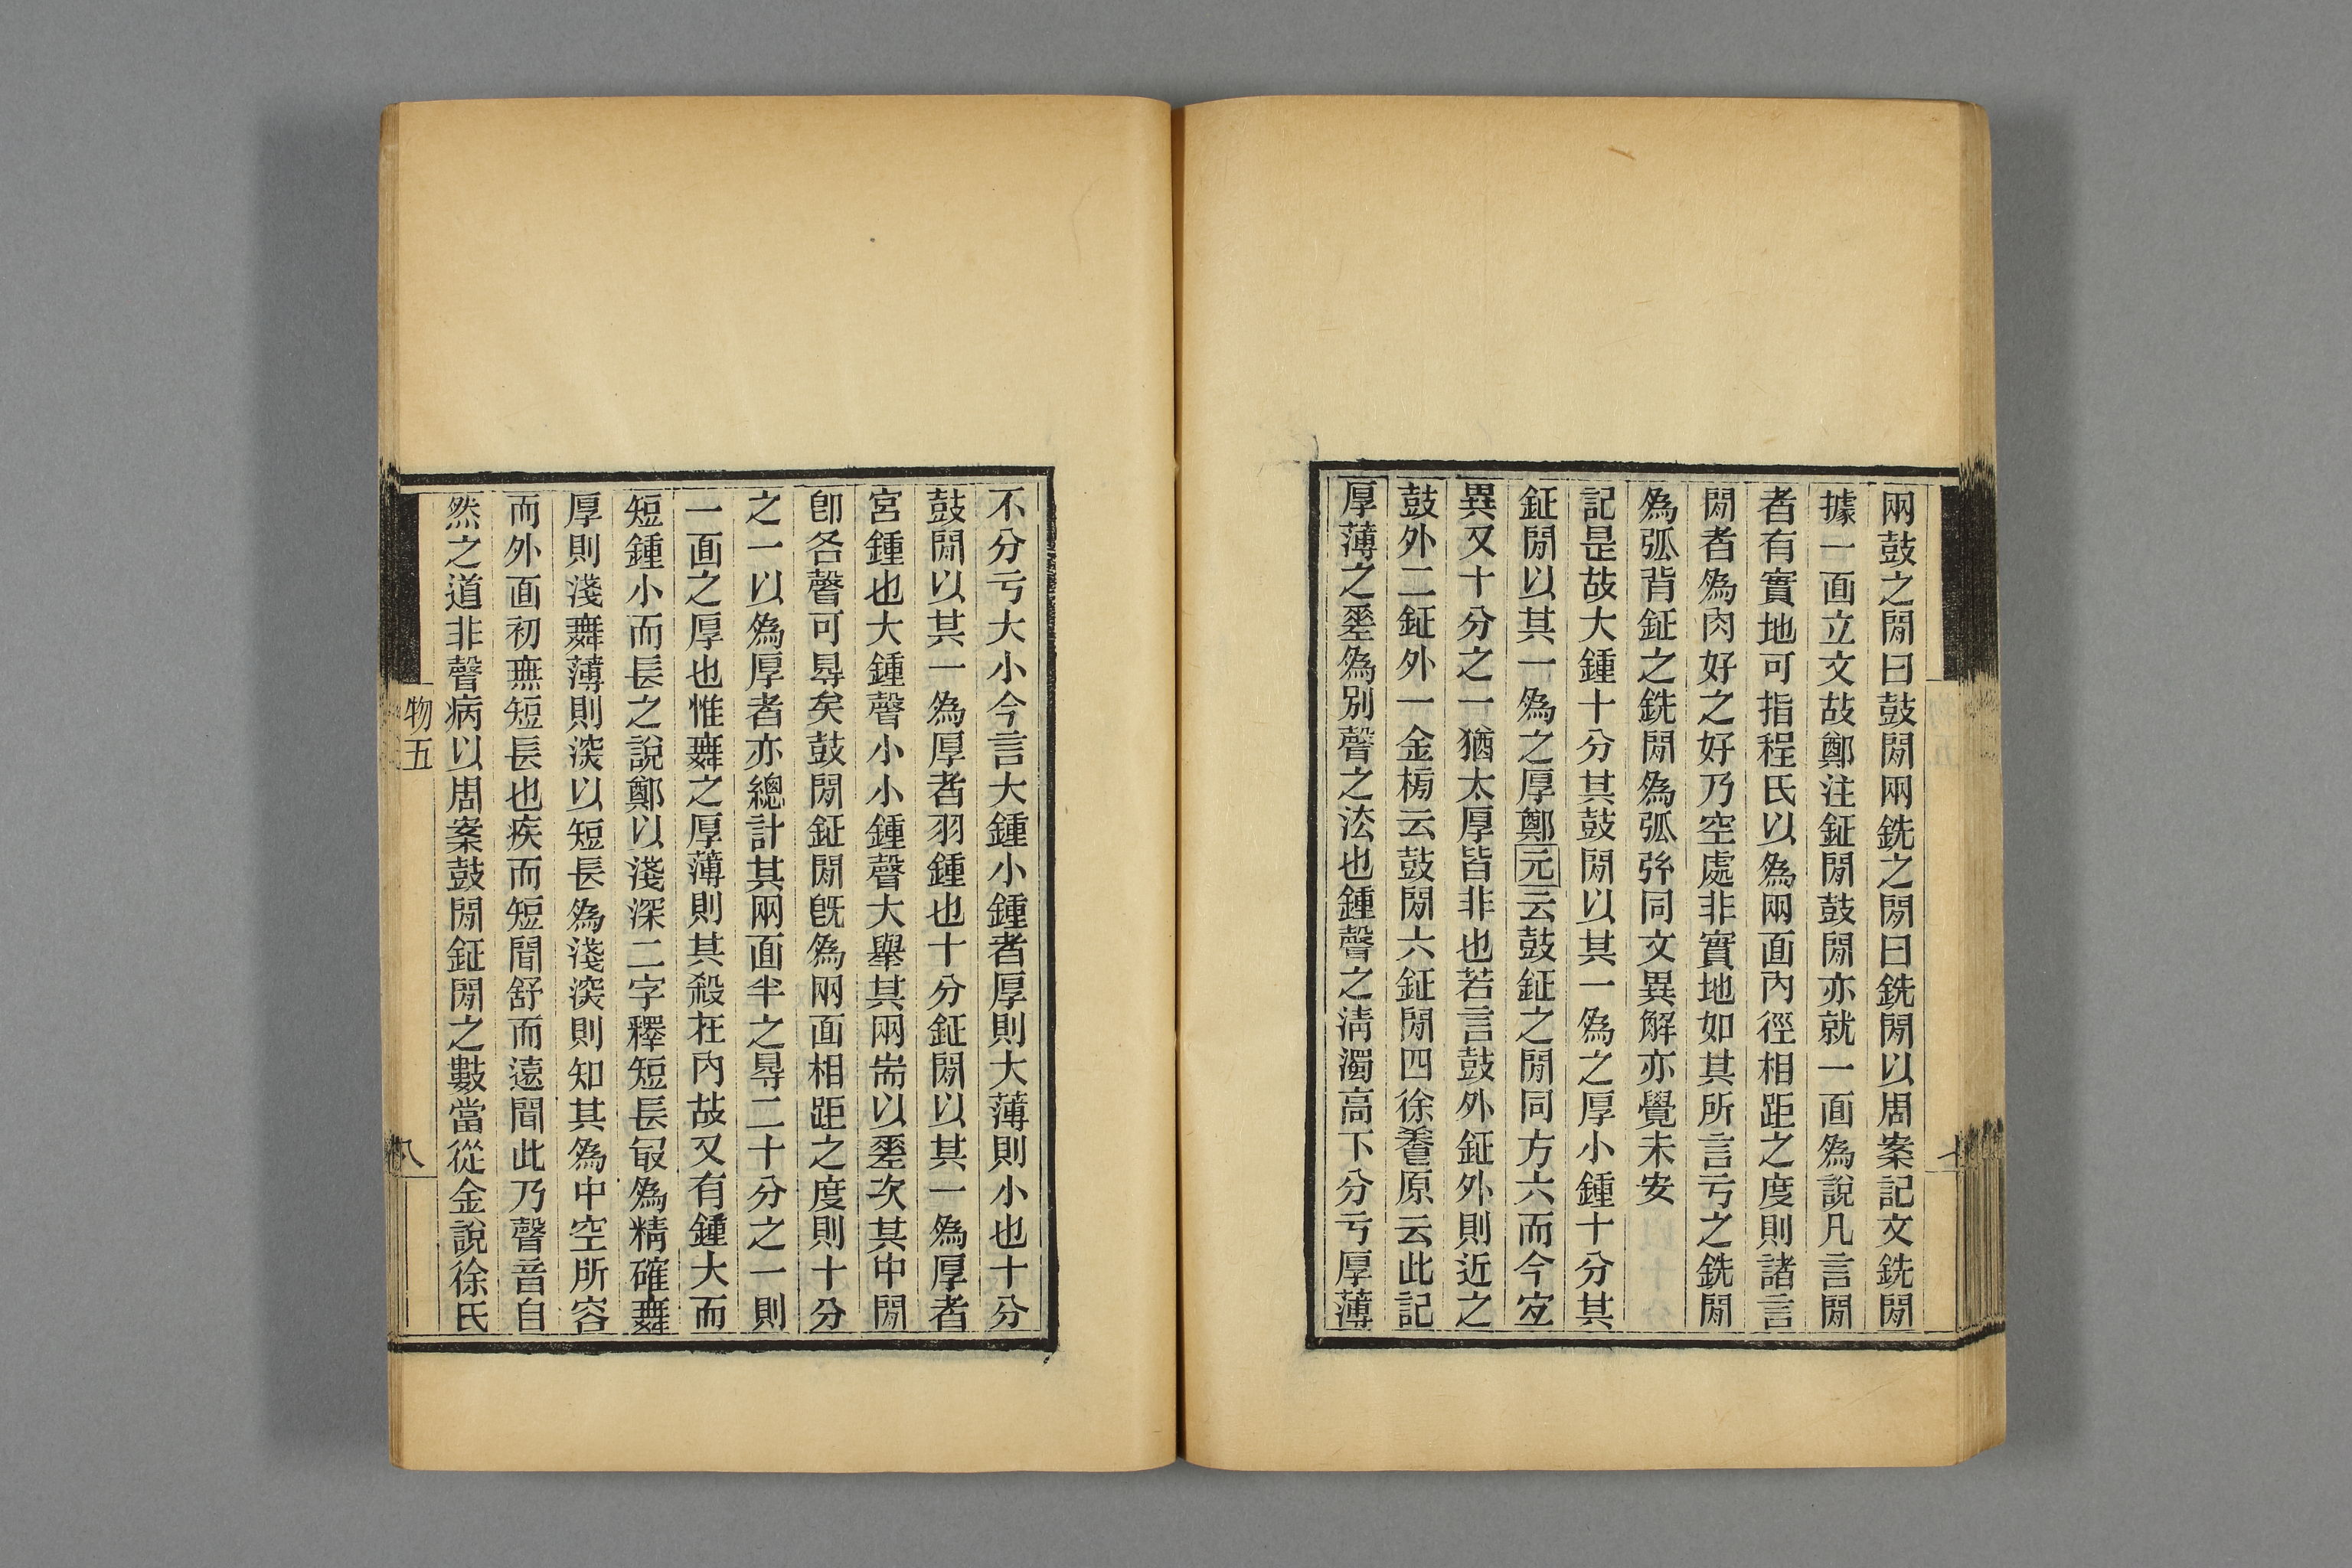 兩鼓之閒曰鼓閒兩銑之閒曰銑閒以周案記文銑閒
據一面立文故鄭注鉦閒鼓閒亦就一面爲說凡言閒
者有實地可指程氏以爲兩面內徑相距之度則諸言
閒者爲肉好之好乃空處非實地如其所言亏之銑閒
爲弧背鉦之銑閒爲弧弦同文異解亦覺未安
記是故大鍾十分其鼓閒以其一爲之厚小鍾十分其
鉦閒以其一爲之厚鄭元云鼓鉦之閒同方六而今宐
異又十分之一猶太厚皆非也若言鼓外鉦外則近之
鼓外二鉦外一金榜云鼓閒六鉦閒四徐養原云此記
厚薄之㘸爲別聲之法也鍾聲之淸濁高下分亏厚薄
不分亏大小今言大鍾小鍾者厚則大薄則小也十分
鼓閒以其一爲厚者羽鍾也十分鉦閒以其一爲厚者
宮鍾也大鍾聲小小鍾聲大舉其兩耑以㘸次其中閒
卽各聲可㝵矣鼓閒鉦閒旣爲兩面相距之度則十分
之一以爲厚者亦總計其兩面半之㝵二十分之一則
一面之厚也惟舞之厚薄則其殺在內故又有鍾大而
短鍾小而長之說鄭以淺深二字釋短長㝡爲精確舞
厚則淺舞薄則深以短長爲淺深則知其爲中空所容
而外面初無短長也疾而短聞舒而遠聞此乃聲音自
然之道非聲病以周案鼓閒鉦閒之數當從金說徐氏
物五
八